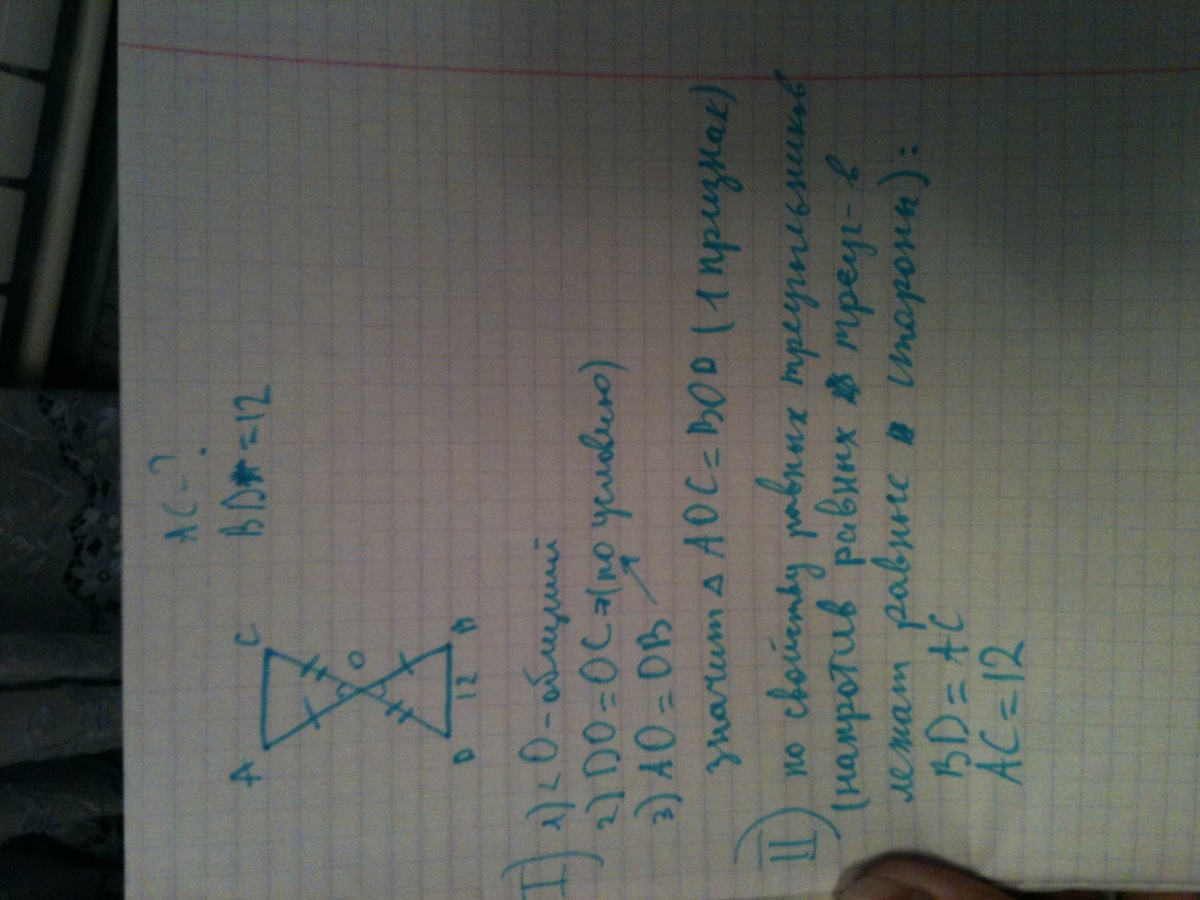 AC-?
BD=12
A C
O
D 12 B
I) 1) <O-общий
2) DO=OC (по условию)
3) AO=OB
значит △ AOC=BOD (1 признак)
II) по свойству равных треугольников
(напротив равных треуг-в
лежат равные стороны):
BD=AC
AC=12